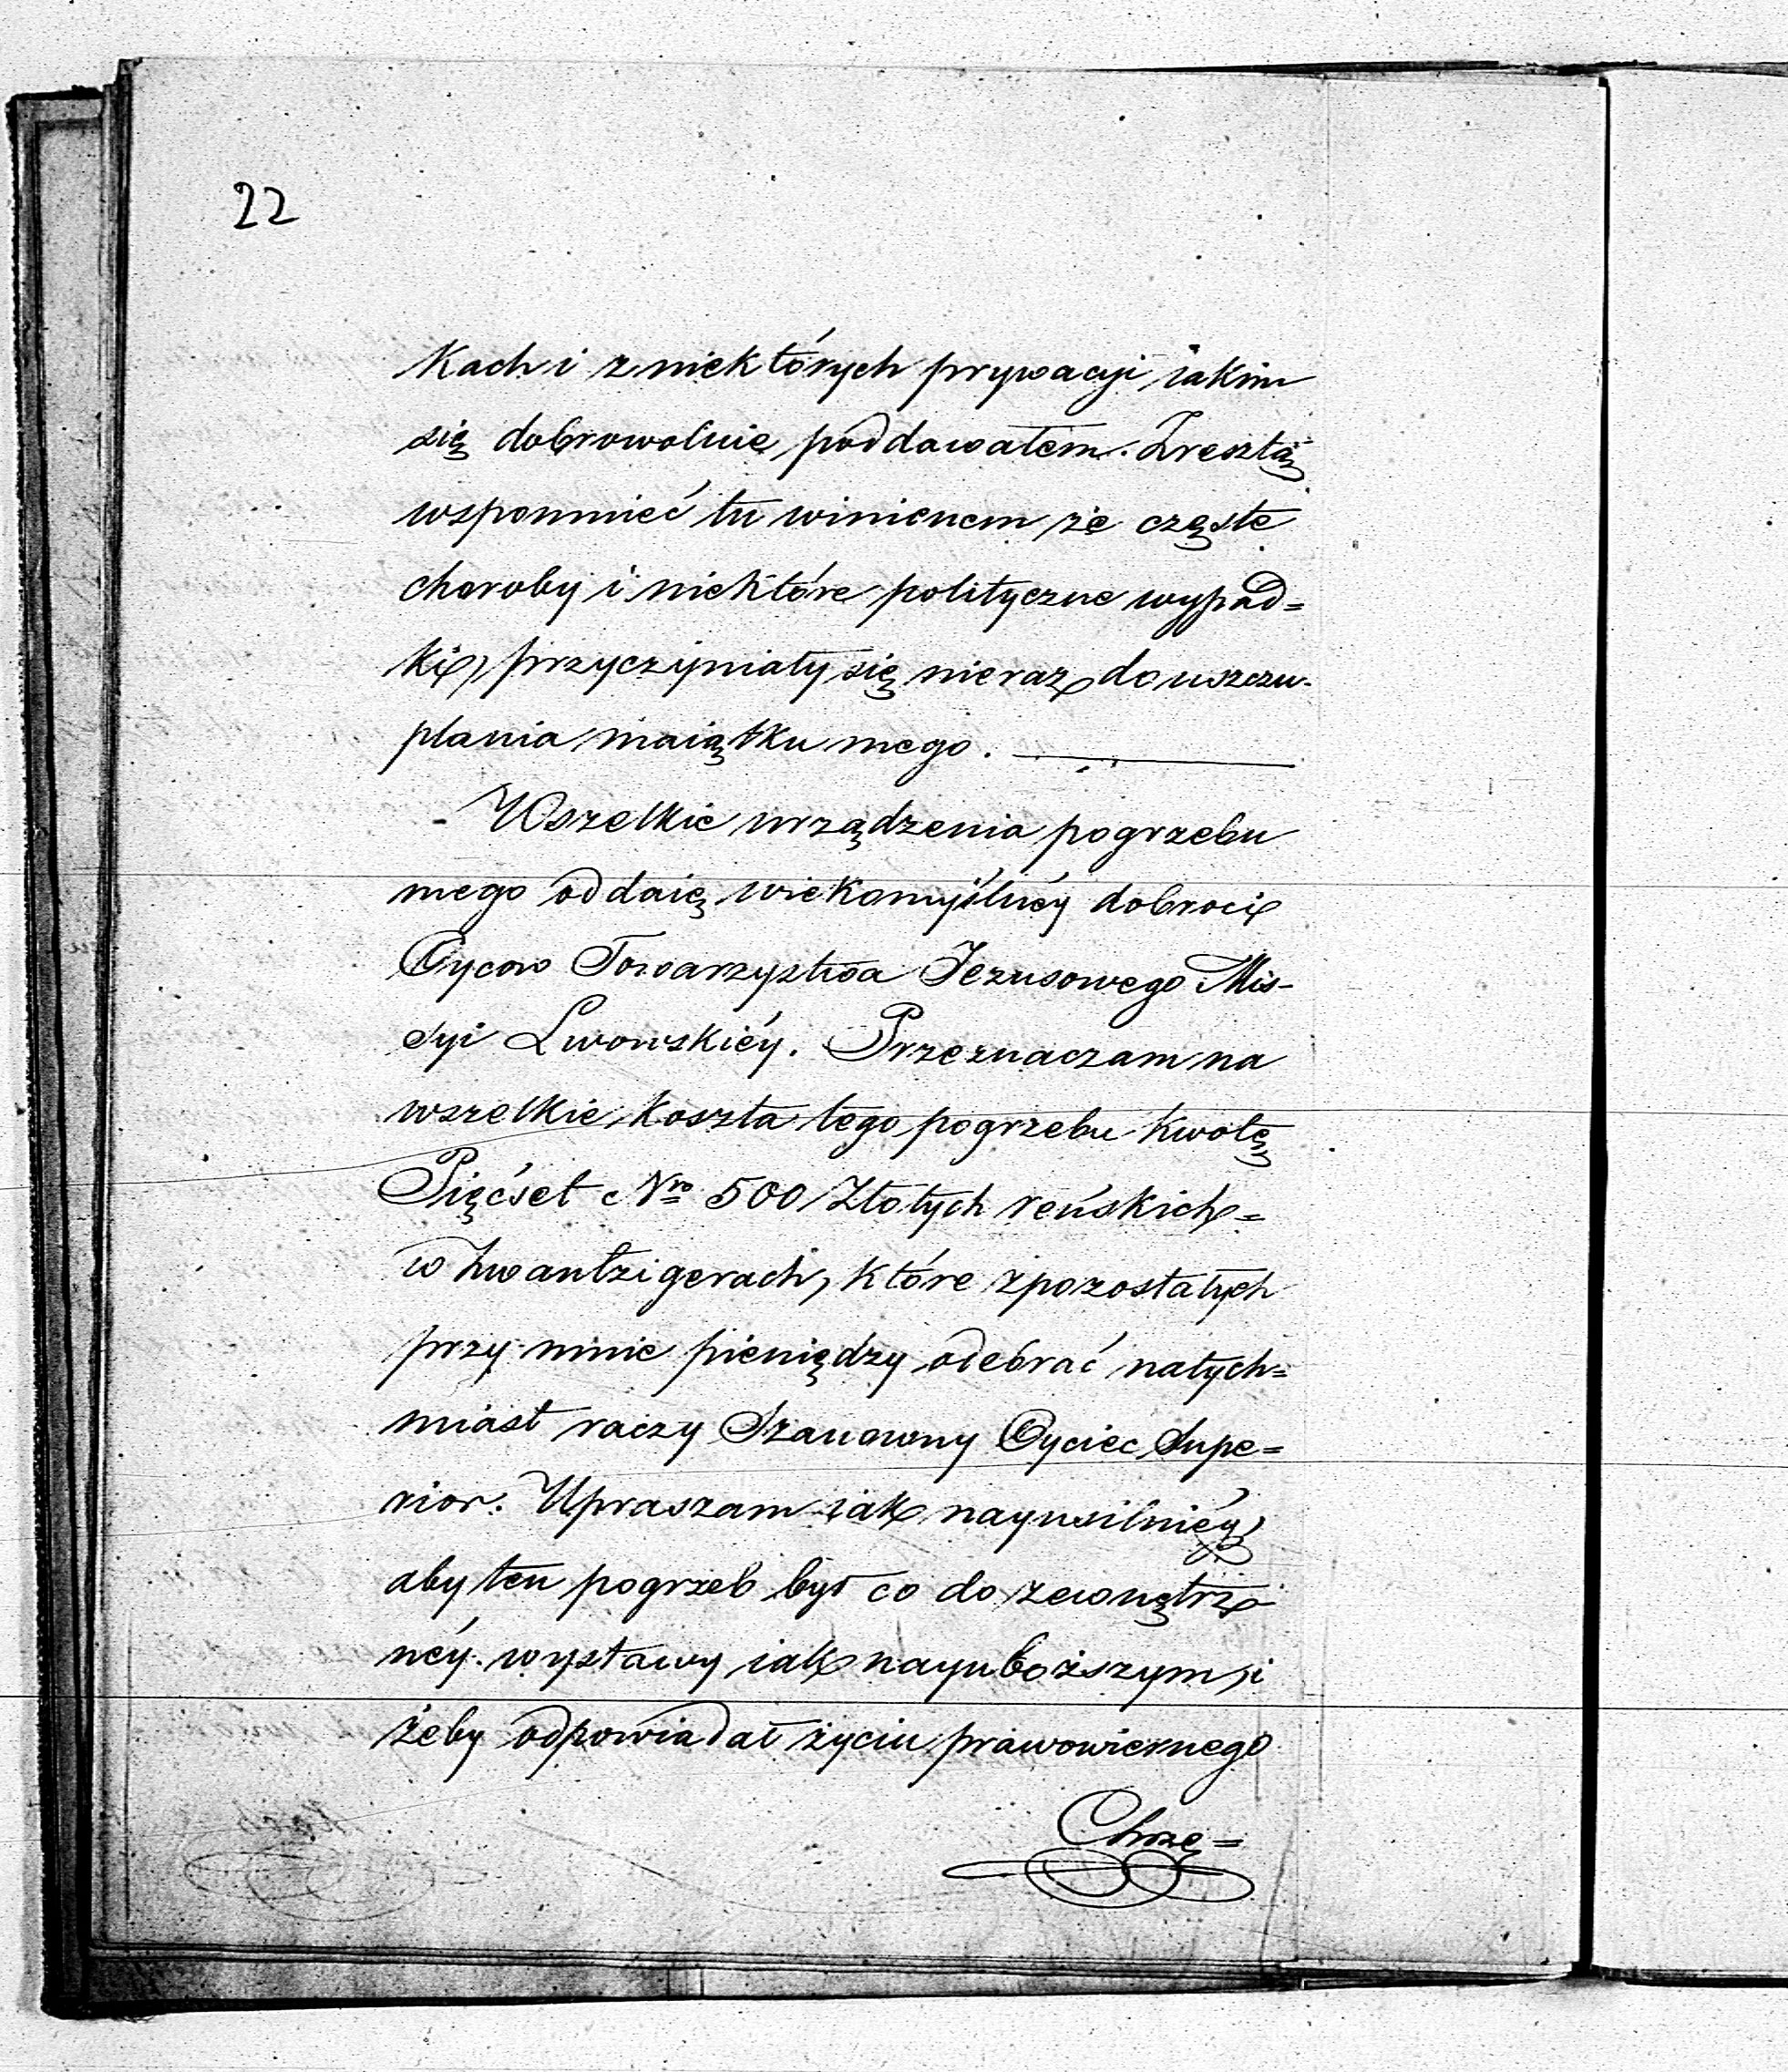 22
kach i z niektórych prywacyi iakim
się dobrowolnie poddawałem. Zresztą
wspomnieć tu winienem że częste
choroby i niektóre polityczne wypad=
ki, przyczyniały się nieraz do uszczu-
plania maiątku mego.
Wszelkie urządzenia pogrzebu
mego oddaię wiekomyślnéy dobroci
Oyców Towarzystwa Jezusowego Mis-
syi Lwowskiéy. Przeznaczam na
wszelkie koszta tego pogrzebu kwotę
Pięćset Nro 500 Złotych reńskich=
w Zwantzigerach, które z pozostałych
przy mnie pieniędzy odebrać natych=
miast raczy Szanowny Oyciec Supe=
rior. Upraszam iak nayusilniéy,
aby ten pogrzeb był co do zewnętrz
néy wystawy iak nayuboższym, i
żeby odpowiadał życiu prawowiernego
Chrzę=